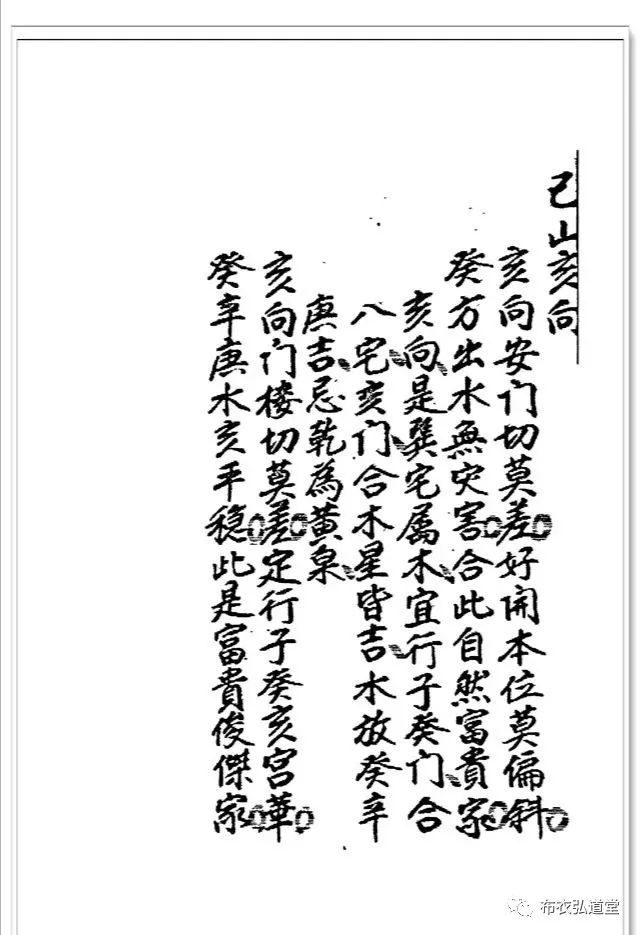 巳山亥向
亥向安门切莫差好闭本位莫偏斜
癸方出水無灾害合此自然富貴家
亥向是巽宅属木宜行子癸门合
八宅亥门合木星皆吉水放癸辛
庚吉忌乾為黄泉
亥向门楼切莫差定行子癸亥宫華
癸辛庚水亥平稳此是富貴俊傑家
布衣弘道堂